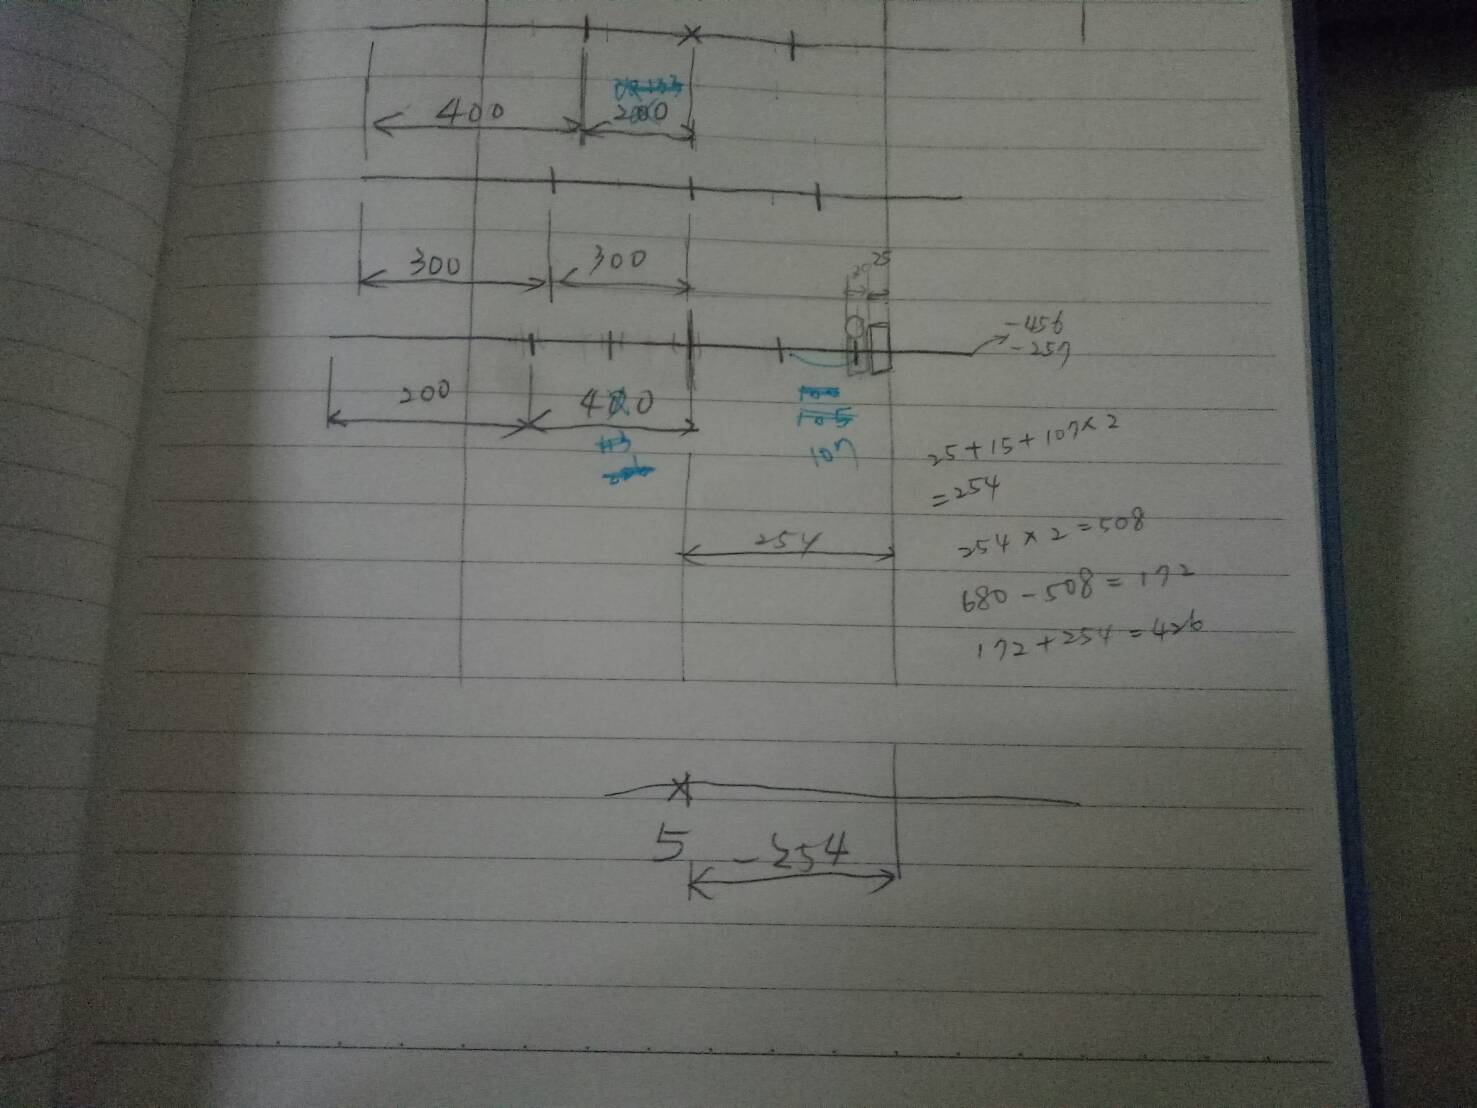 400
200
300
300
20
25
-456
-257
200
400
100
105
107
25+15+107×2
=254
254
254×2=508
680-508=172
172+254=426
5
-254